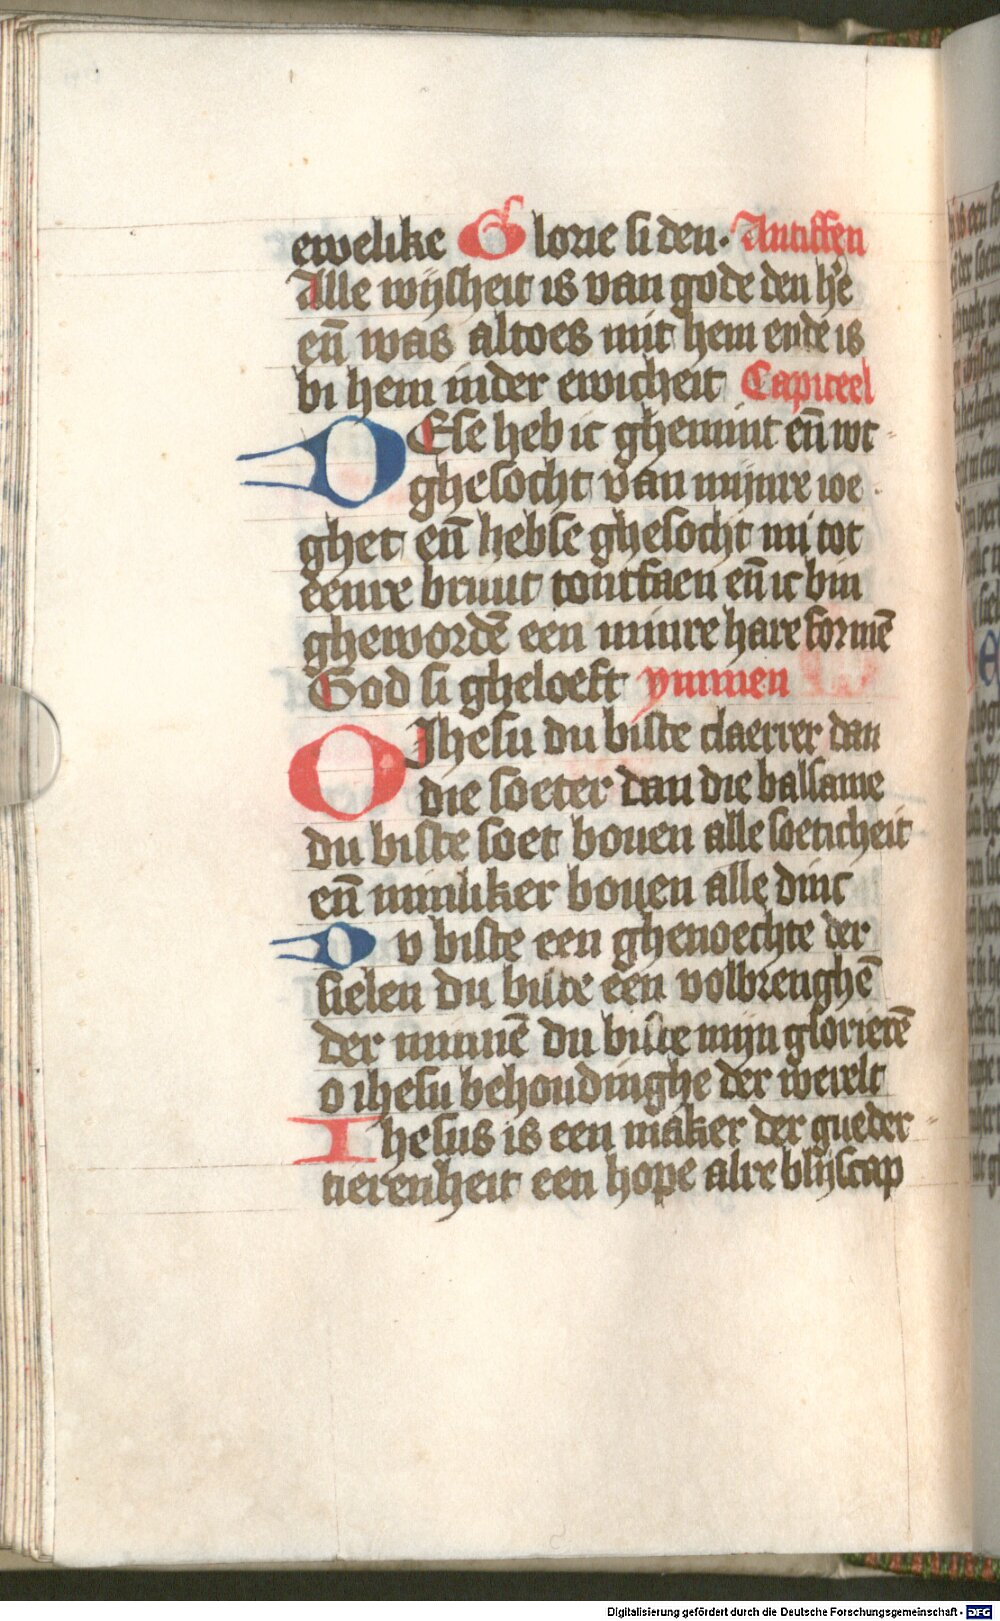 ewelike Glorie si den. Antiffen
Alle wijsheit is van gode den he̅
en̅ was altoes mit hem ende is
bi hem inder ewicheit Capiteel
DEse heb ic ghemint en̅ wt
ghesocht van mijnre ioe
ghet en̅ hebse ghesocht mi tot
eenre bruut tontfaen en̅ ic bin
ghewordē een minre hare formē
God si gheloeft ymnen
O Jhesu du biste claerrer dan
die soeter dan die balsame
du biste soet bouen alle soeticheit
en̅ minliker bouen alle dinc
Dv biste een ghenoechte der
sielen du biste een volbrenghē
der minnē du biste mijn glorierē
o ihesu behoudinghe der werelt
Ihesus is een maker der gueder
tierenheit een hope alre blijscap
Digitalisierung gefördert durch die Deutsche Forschungsgemeinschaft - DFG